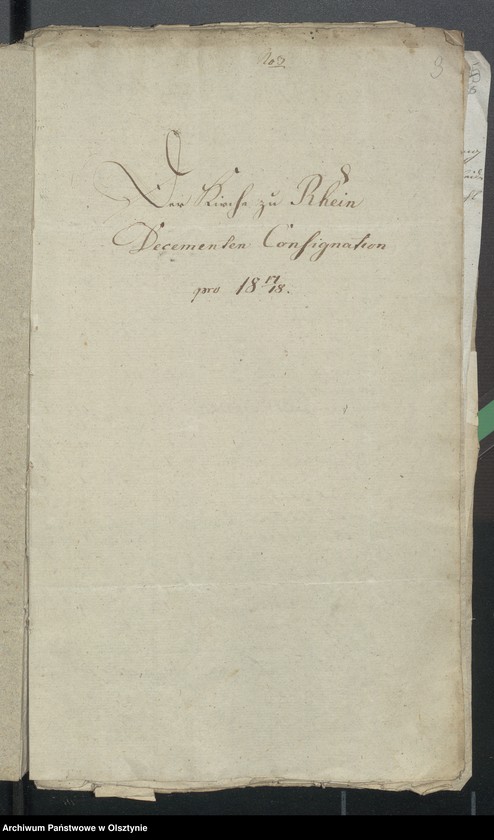 No 2
3
Der Kirche zu Rhein
Decementen Consignation
pro 18 17/18.
Archiwum Państwowe w Olsztynie